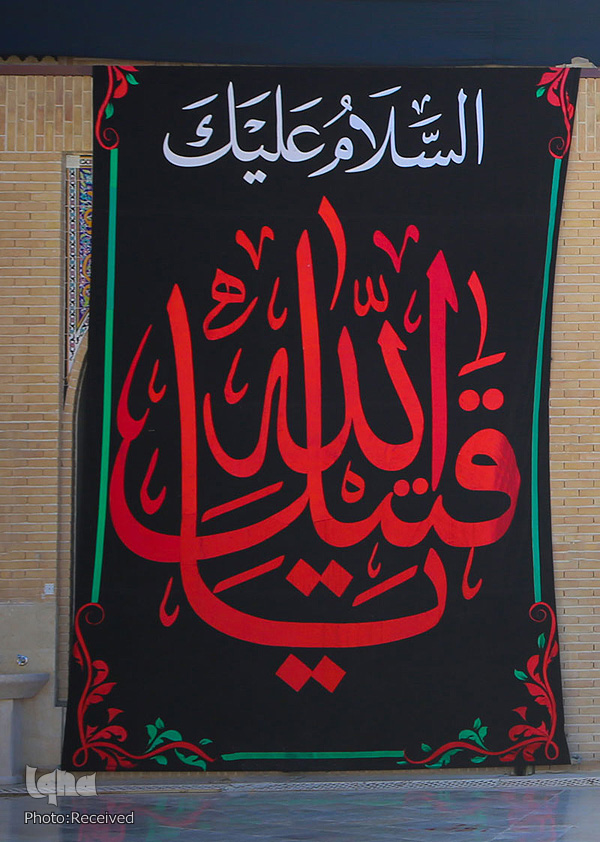 السَّلَامُ عَلَيْكَ
يا قتيل الله
iqna
Photo:Received